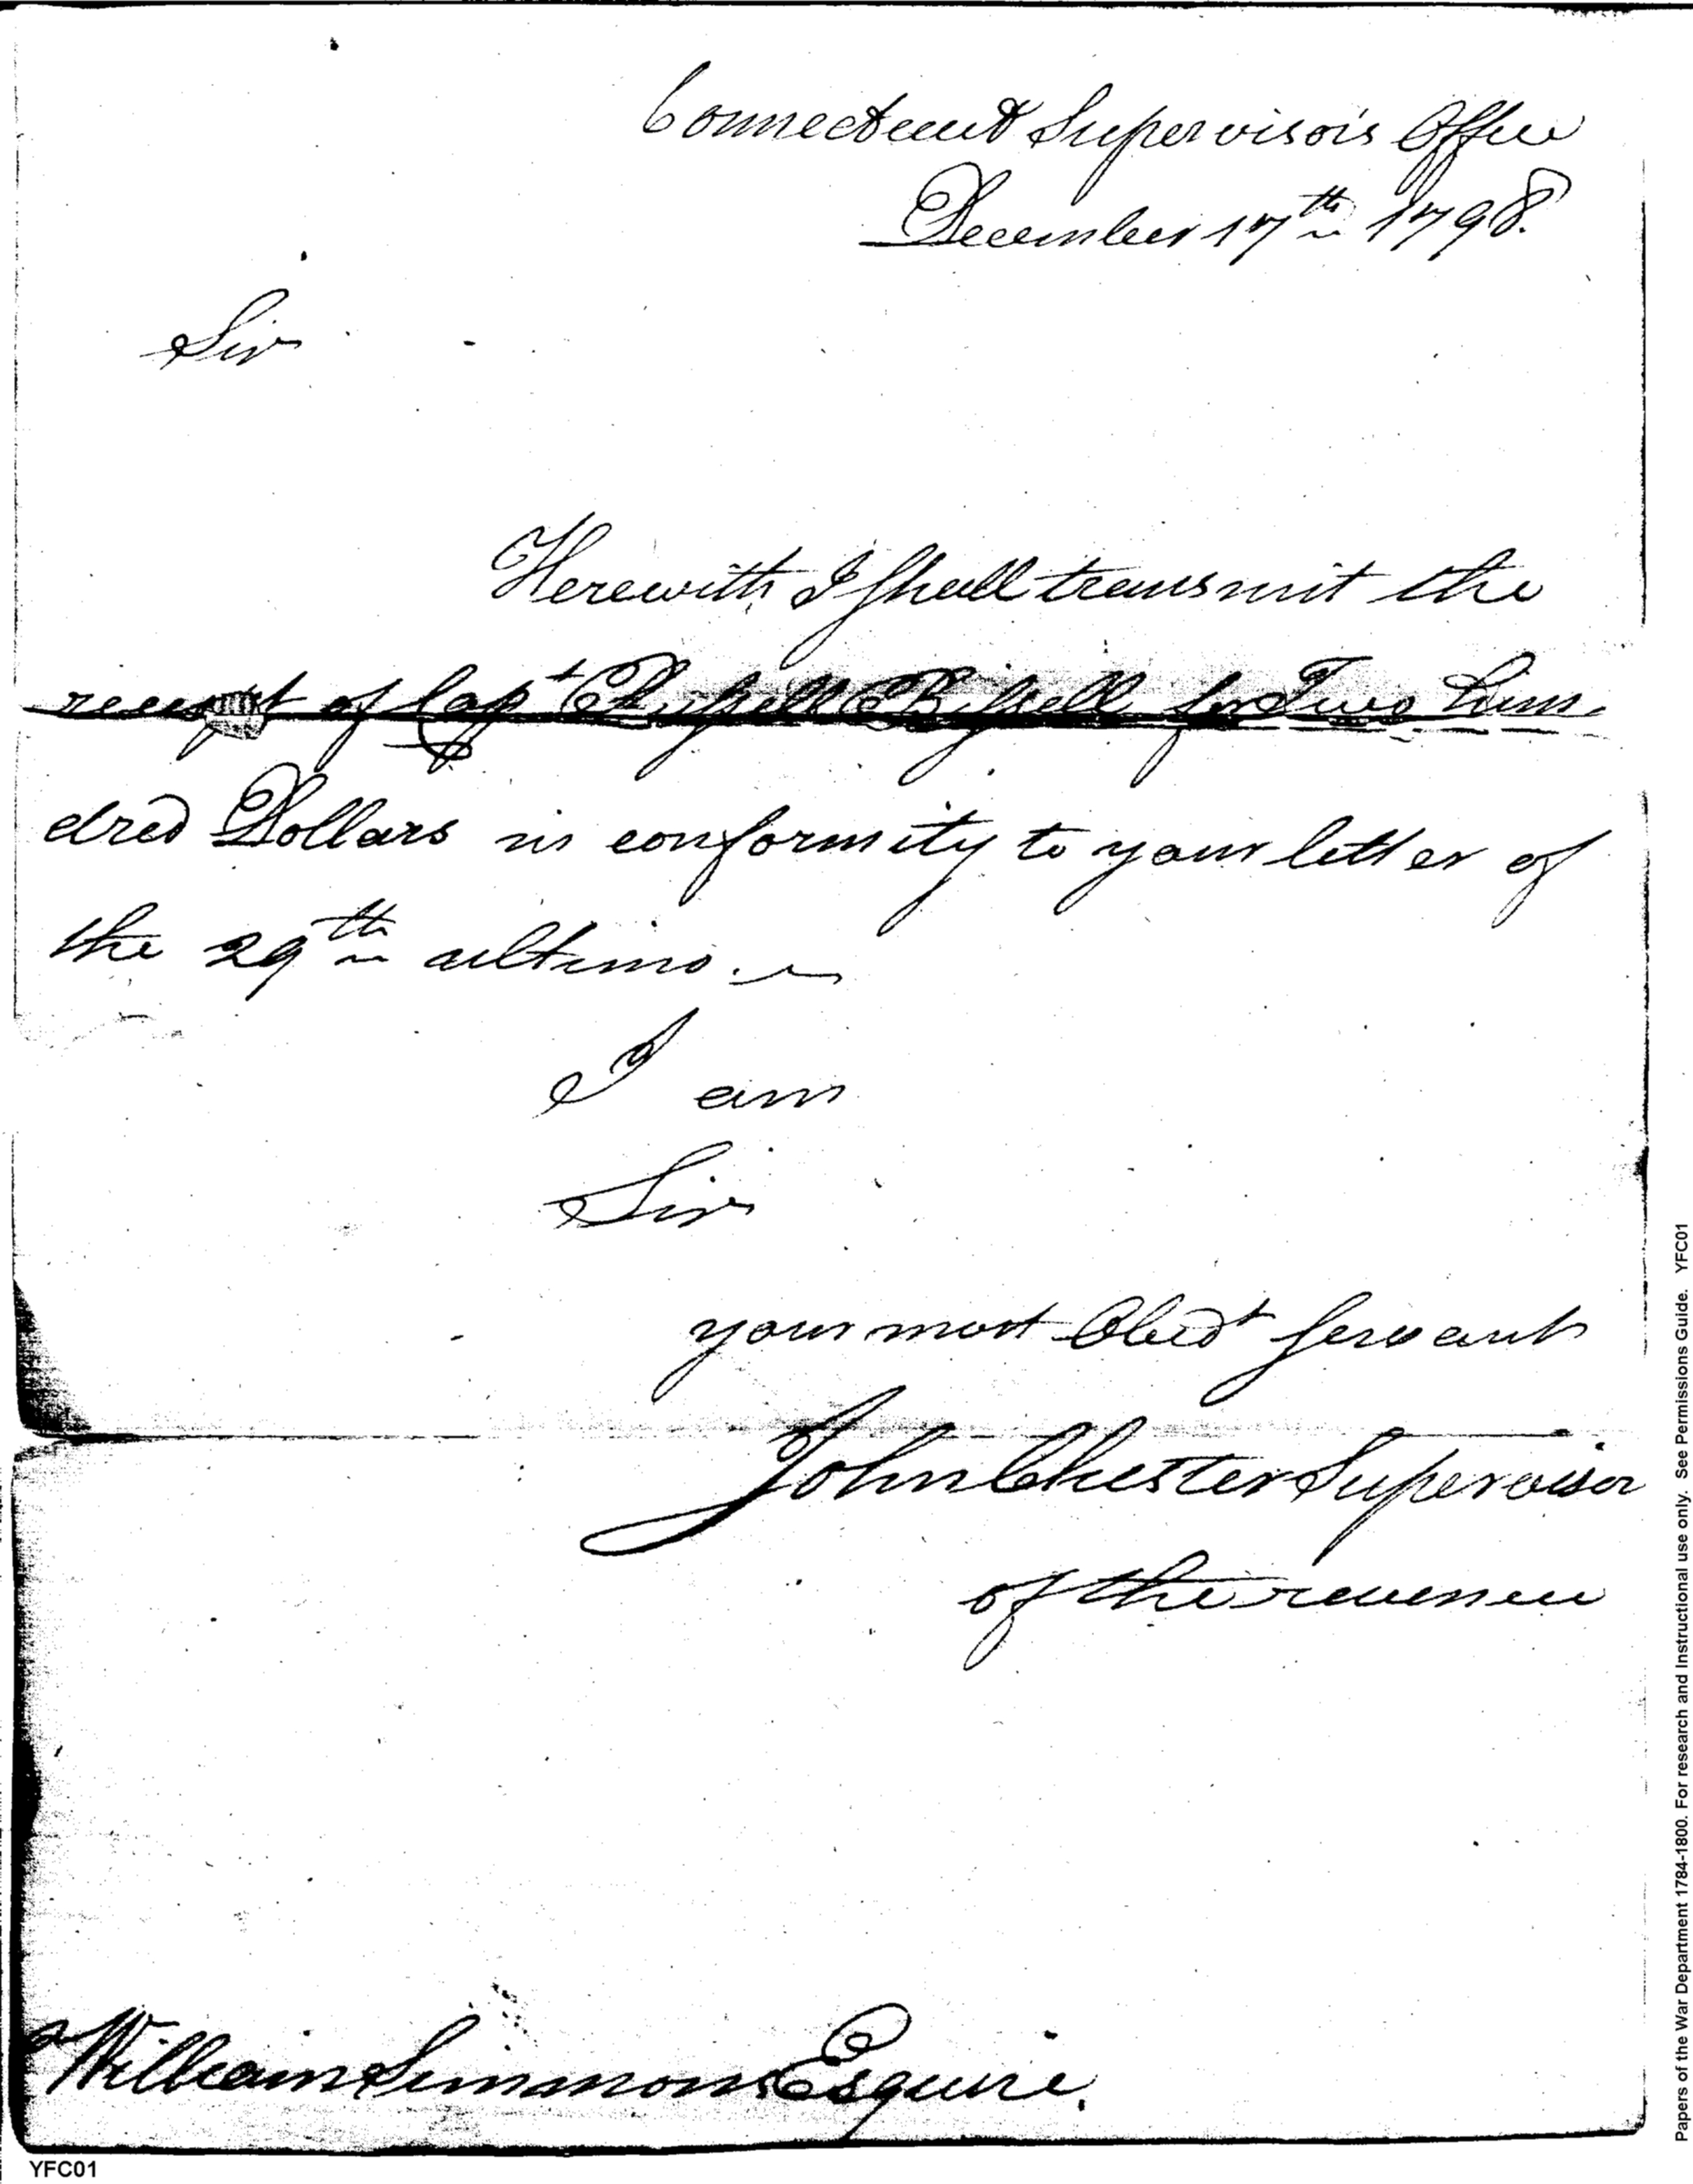 Connecticut Supervisor's Office
December 17th 1798.
Sir
Herewith I shall transmit the
receipt of Capt Russell Bissell for Two Hun-
dred Dollars in conformity to your letter of
the 29th ultimo.
I am
Sir
your most Obedt servant
John Chester Supervisor
of the revenue
William Simmons Esquire.
YFC01
Papers of the War Department 1784-1800. For research and instructional use only. See Permissions Guide. YFC01